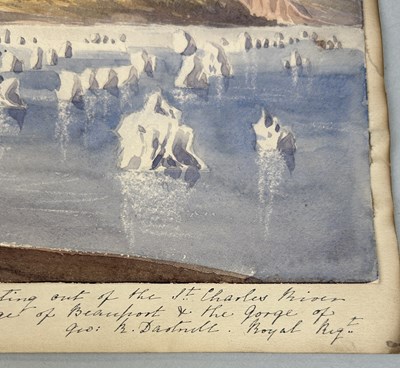 ting out of the St. Charles River
ge of Beauport & the Gorge of
Geo: R. Dartnell. Royal Regt.